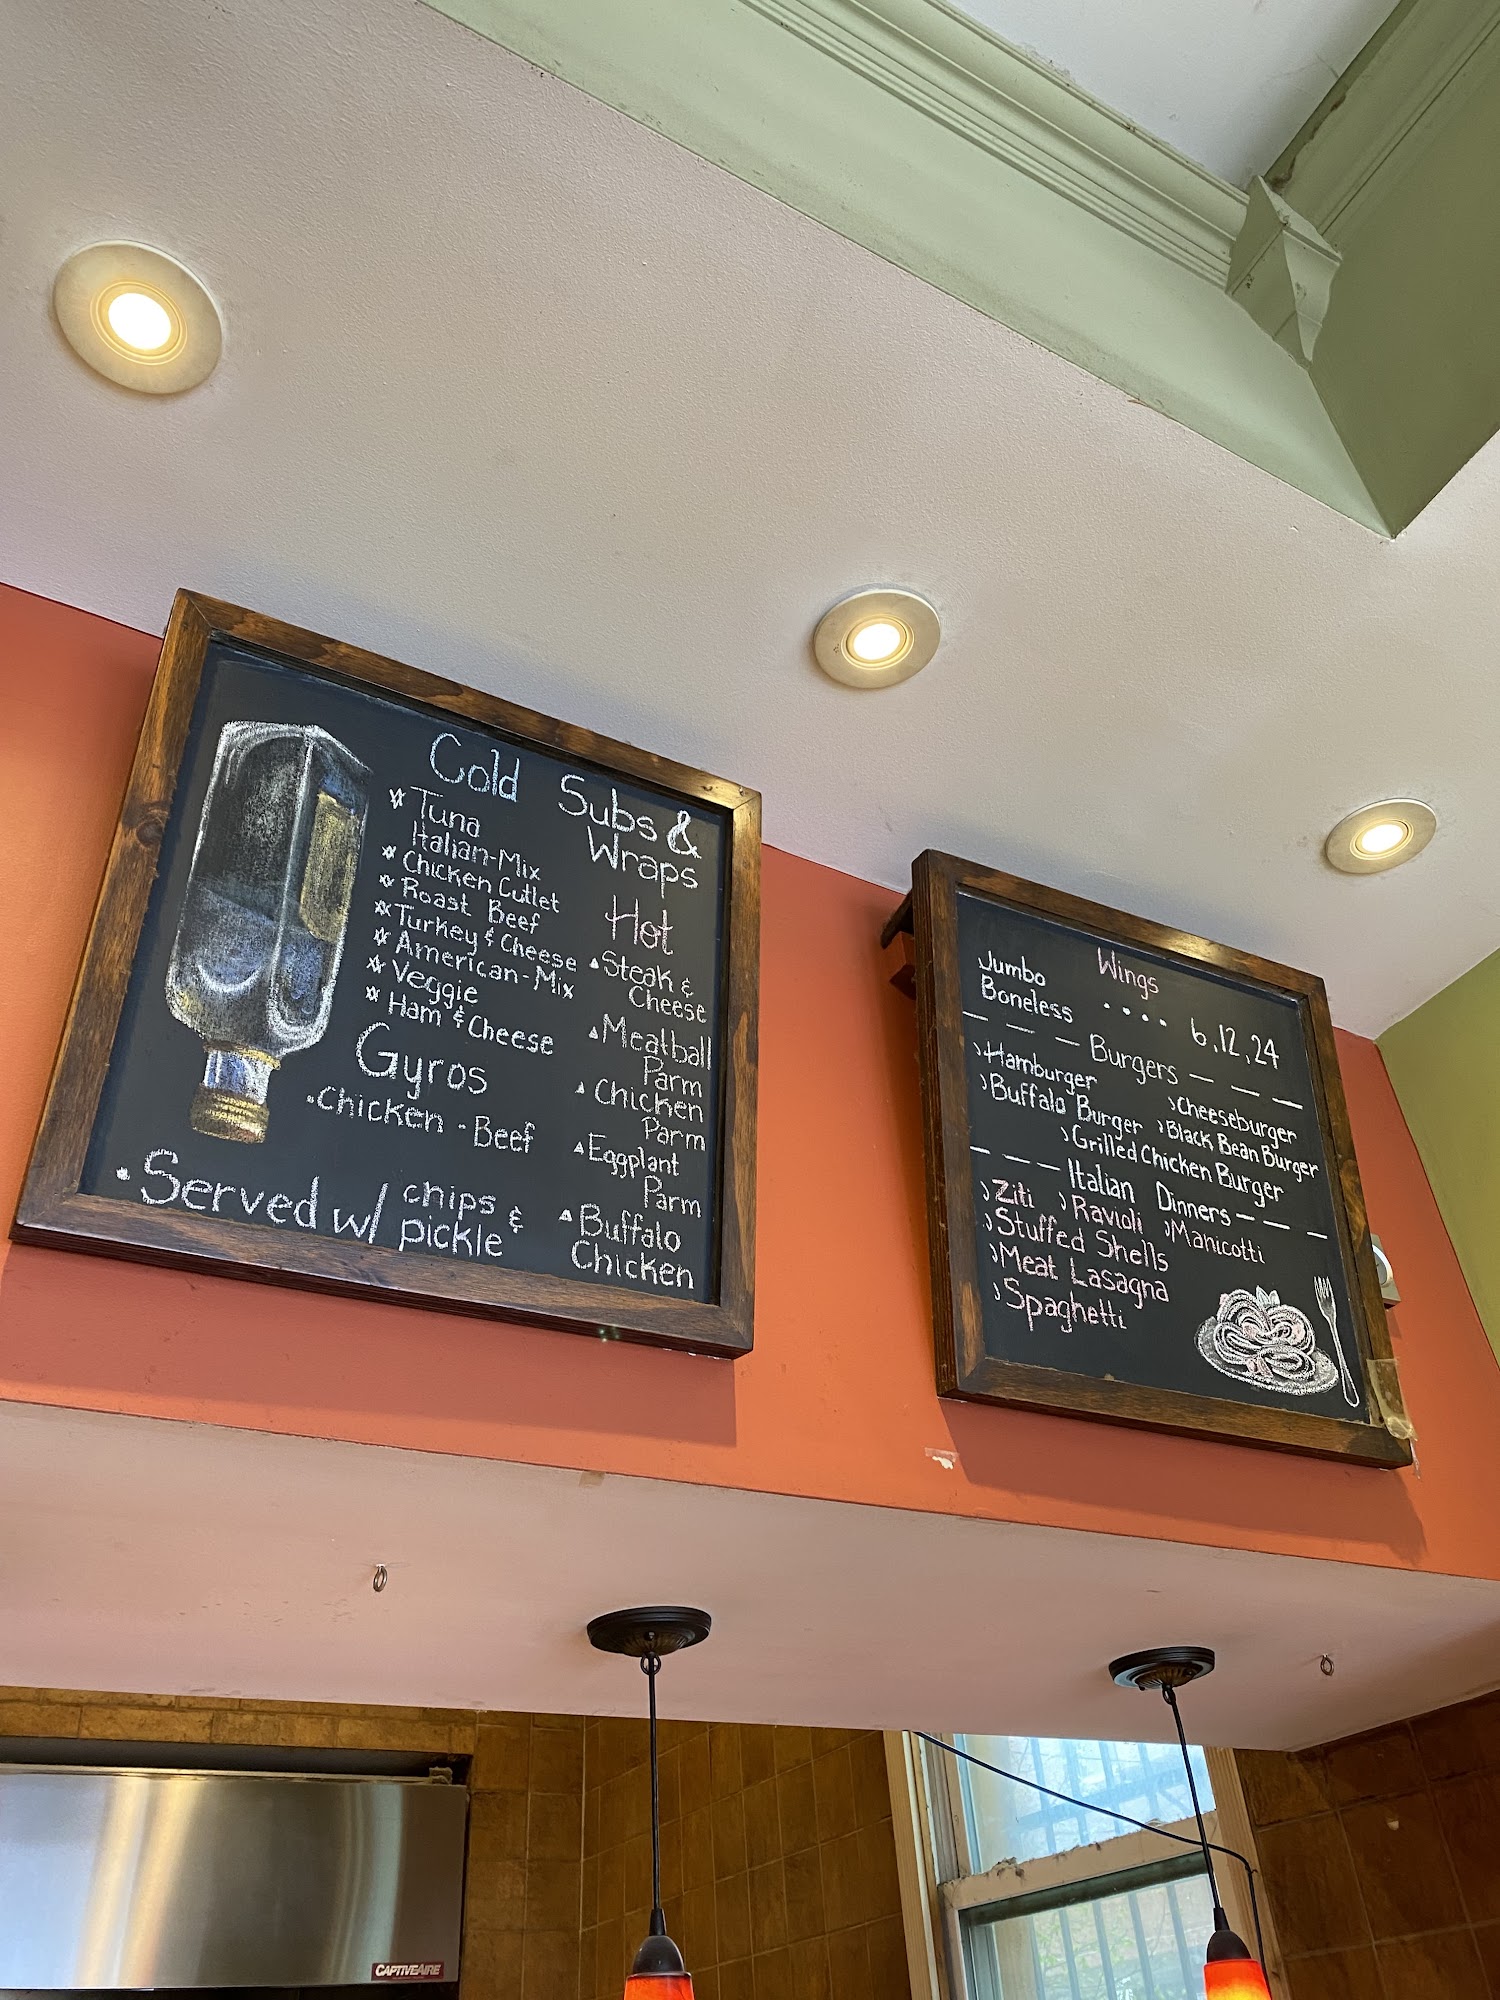 Cold
Subs &
Wraps
Tuna
Italian-Mix
Chicken Cutlet
Roast Beef
Turkey & Cheese
American-Mix
Veggie
Ham & Cheese
Gyros
Chicken - Beef
Hot
Steak &
Cheese
Meatball
Parm
Chicken
Parm
Eggplant
Parm
Buffalo
Chicken
Served w/ chips &
pickle
Wings
Jumbo
Boneless .... 6,12,24
Burgers
Hamburger
Cheeseburger
Buffalo Burger
Black Bean Burger
Grilled Chicken Burger
Italian Dinners
Ziti Ravioli Manicotti
Stuffed Shells
Meat Lasagna
Spaghetti
CAPTIVEAIRE